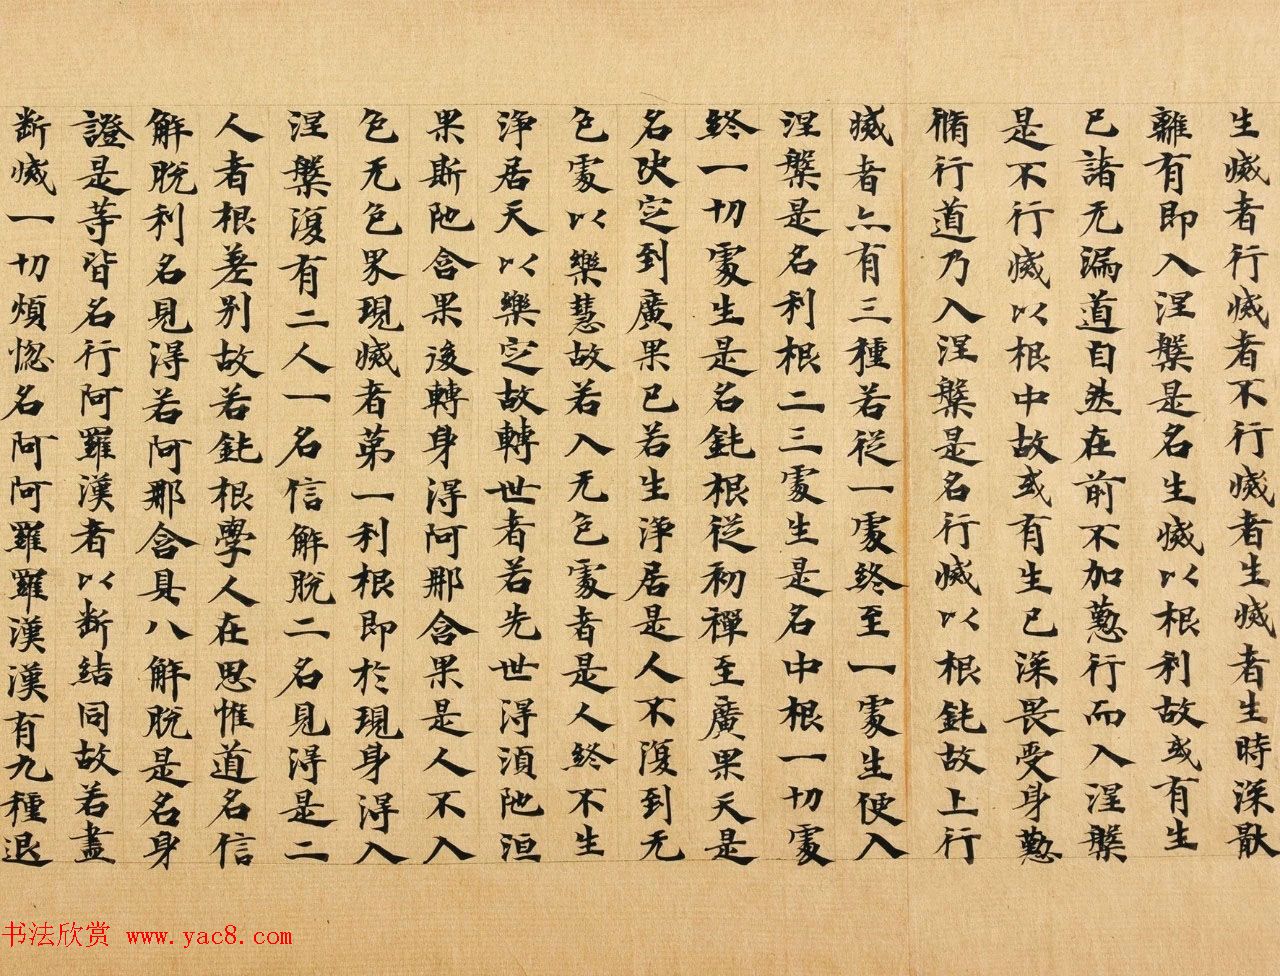 生滅者行滅者不行滅者生滅者生時深猒
離有即入涅槃是名生滅以根利故或有生
已諸无漏道自然在前不加懃行而入涅槃
是不行滅以根中故或有生已深畏受身懃
脩行道乃入涅槃是名行滅以根鈍故上行
滅者亦有三種若從一處終至一處生便入
涅槃是名利根二三處生是名中根一切處
終一切處生是名鈍根從初禪至廣果天是
名决定到廣果已若生淨居是人不復到无
色處以樂慧故若入无色處者是人終不生
淨居天以樂定故轉世者若先世得湏陁洹
果斯陁含果後轉身得阿那含果是人不入
色无色界現滅者第一利根即於現身得入
涅槃復有二人一名信解脫二名見得是二
人者根差别故若鈍根學人在思惟道名信
解脫利名見得若阿那含具八解脫是名身
證是等皆名行阿羅漢者以断結同故若盡
断滅一切煩惚名阿阿羅羅漢漢有九種退
书法欣赏 www.yac8.com